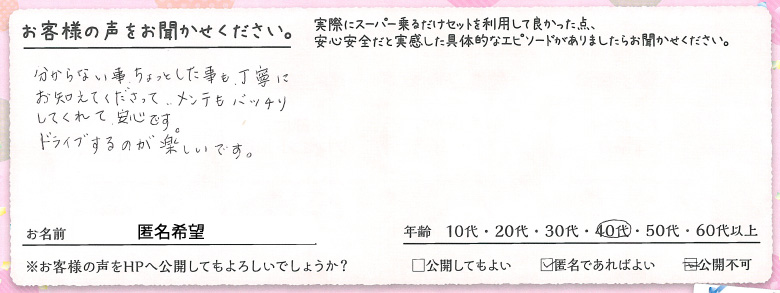 お客様の声をお聞かせください。
実際にスーパー乗るだけセットを利用して良かった点、
安心安全だと実感した具体的なエピソードがありましたらお聞かせください。
分からない事、ちょっとした事も、丁寧に
お知えてくださって、メンテもバッチリ
してくれて、安心です。
ドライブするのが楽しいです。
お名前 匿名希望
年齢 10代・20代・30代・40代・50代・60代以上
※お客様の声をHPへ公開してもよろしいでしょうか？ □公開してもよい ☑匿名であればよい □公開不可